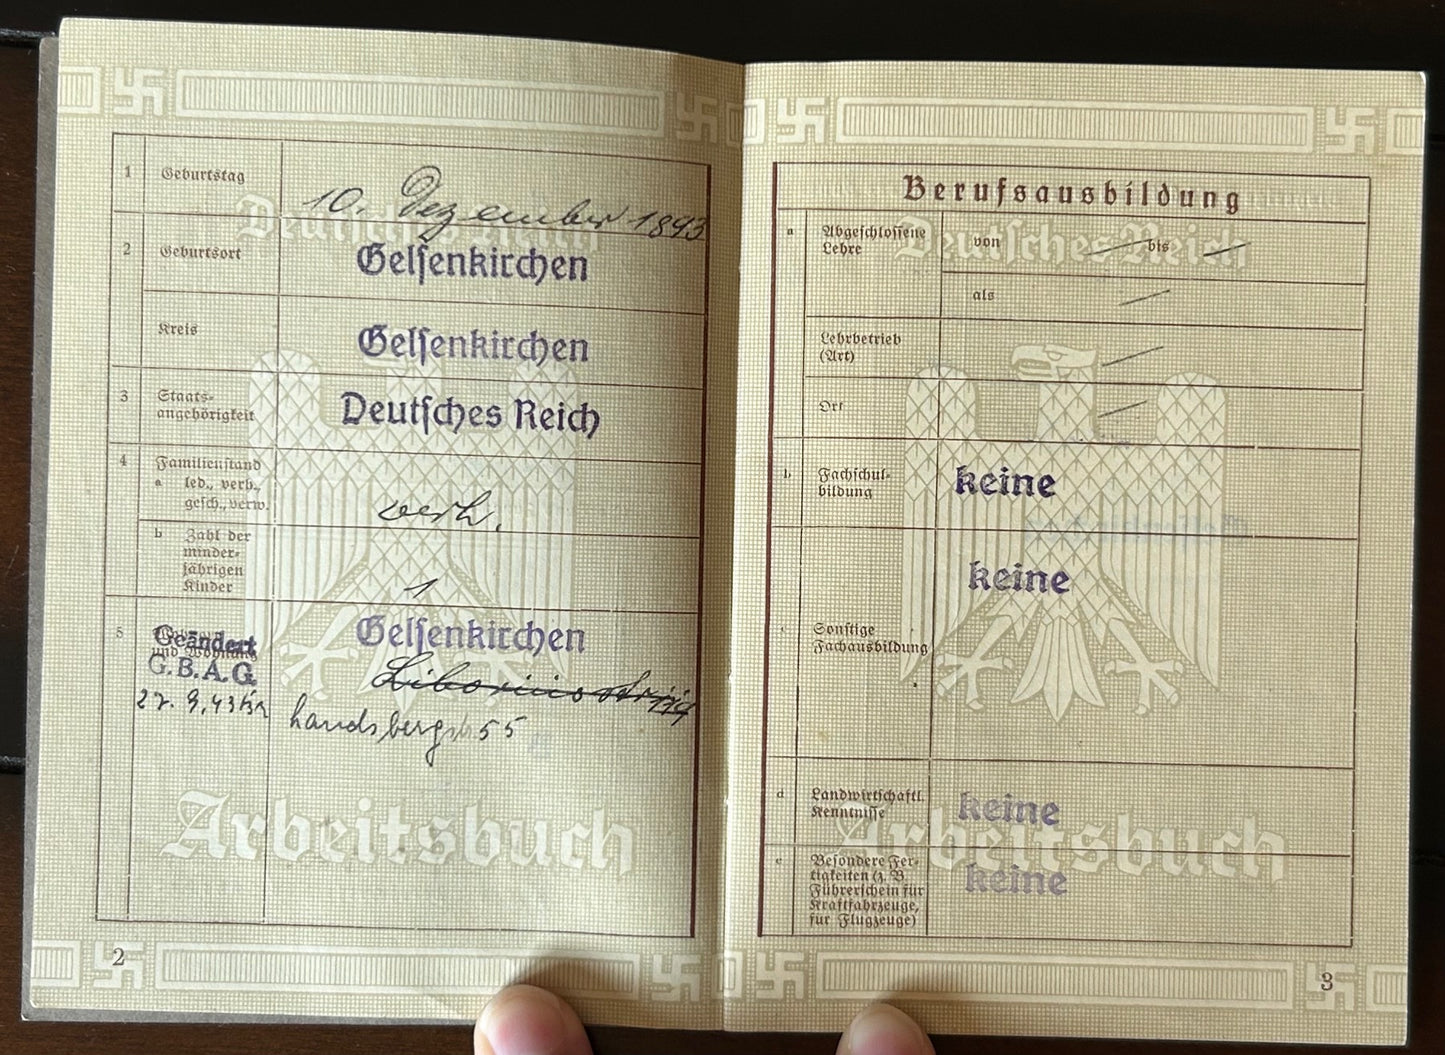 1 Geburtstag 10. Dezember 1893
2 Geburtsort Gelsenkirchen
Kreis Gelsenkirchen
3 Staats-
angehörigkeit Deutsches Reich
4 Familienstand
a led., verh.,
gesch., verw. verh.
b Zahl der
minder-
jährigen
Kinder 1
5 Gelsenkirchen
Geändert
und Wohnung
G.B.A.G.
27. 9. 43
Landsbergstr 55
Deutsches Reich
Arbeitsbuch
2
Berufsausbildung
a Abgeschlossene
Lehre
von — bis —
als —
Lehrbetrieb
(Art) —
Ort —
b Fachschul-
bildung keine
keine
c Sonstige
Fachausbildung
d Landwirtschaftl.
Kenntnisse keine
e Besondere Fer-
tigkeiten (z. B.
Führerschein für
Kraftfahrzeuge,
für Flugzeuge) keine
Deutsches Reich
Arbeitsbuch
3